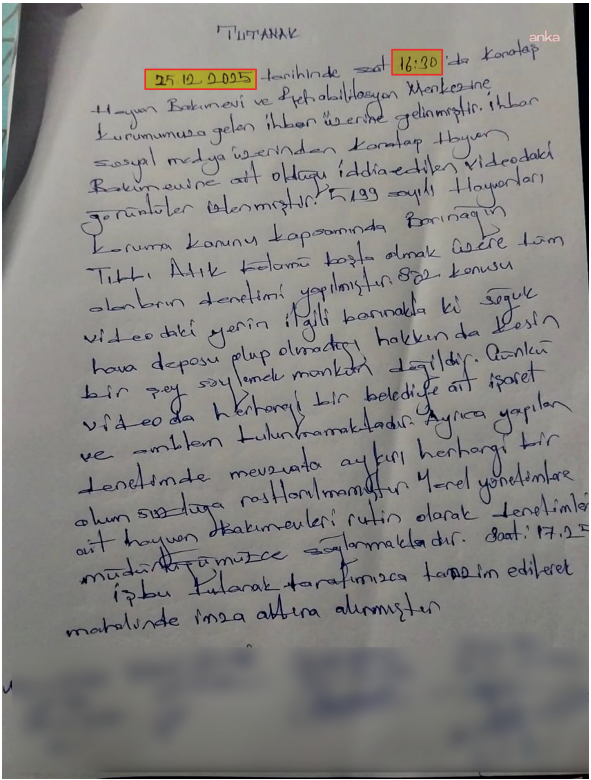 anka
TUTANAK
25.12.2025 tarihinde saat 16:30'da Karatap
Hayvan Bakımevi ve Rehabilitasyon Merkezine
kurumumuza gelen ihbar üzerine gelinmiştir. ihbar
sosyal medya üzerinden Karatap Hayvan
Bakımevine ait olduğu iddia edilen videodaki
görüntüler izlenmiştir. 5199 sayılı Hayvanları
koruma kanunu kapsamında Barınağın
Tıbbi Atık bölümü başta olmak üzere tüm
alanların denetimi yapılmıştır. Söz konusu
videodaki yerin ilgili barınakta ki soğuk
hava deposu olup olmadığı hakkında kesin
bir şey söylemek mümkün değildir. Çünkü
videoda herhangi bir belediye ait işaret
ve amblem bulunmamaktadır. Ayrıca yapılan
denetimde mevzuata aykırı herhangi bir
olumsuzluğa rastlanılmamıştır. Yerel yönetimlere
ait hayvan Bakımevleri rutin olarak denetimleri
müdürlüğümüzce sağlanmaktadır. Saat: 17.25
işbu tutanak tarafımızca tanzim edilerek
mahalinde imza altına alınmıştır